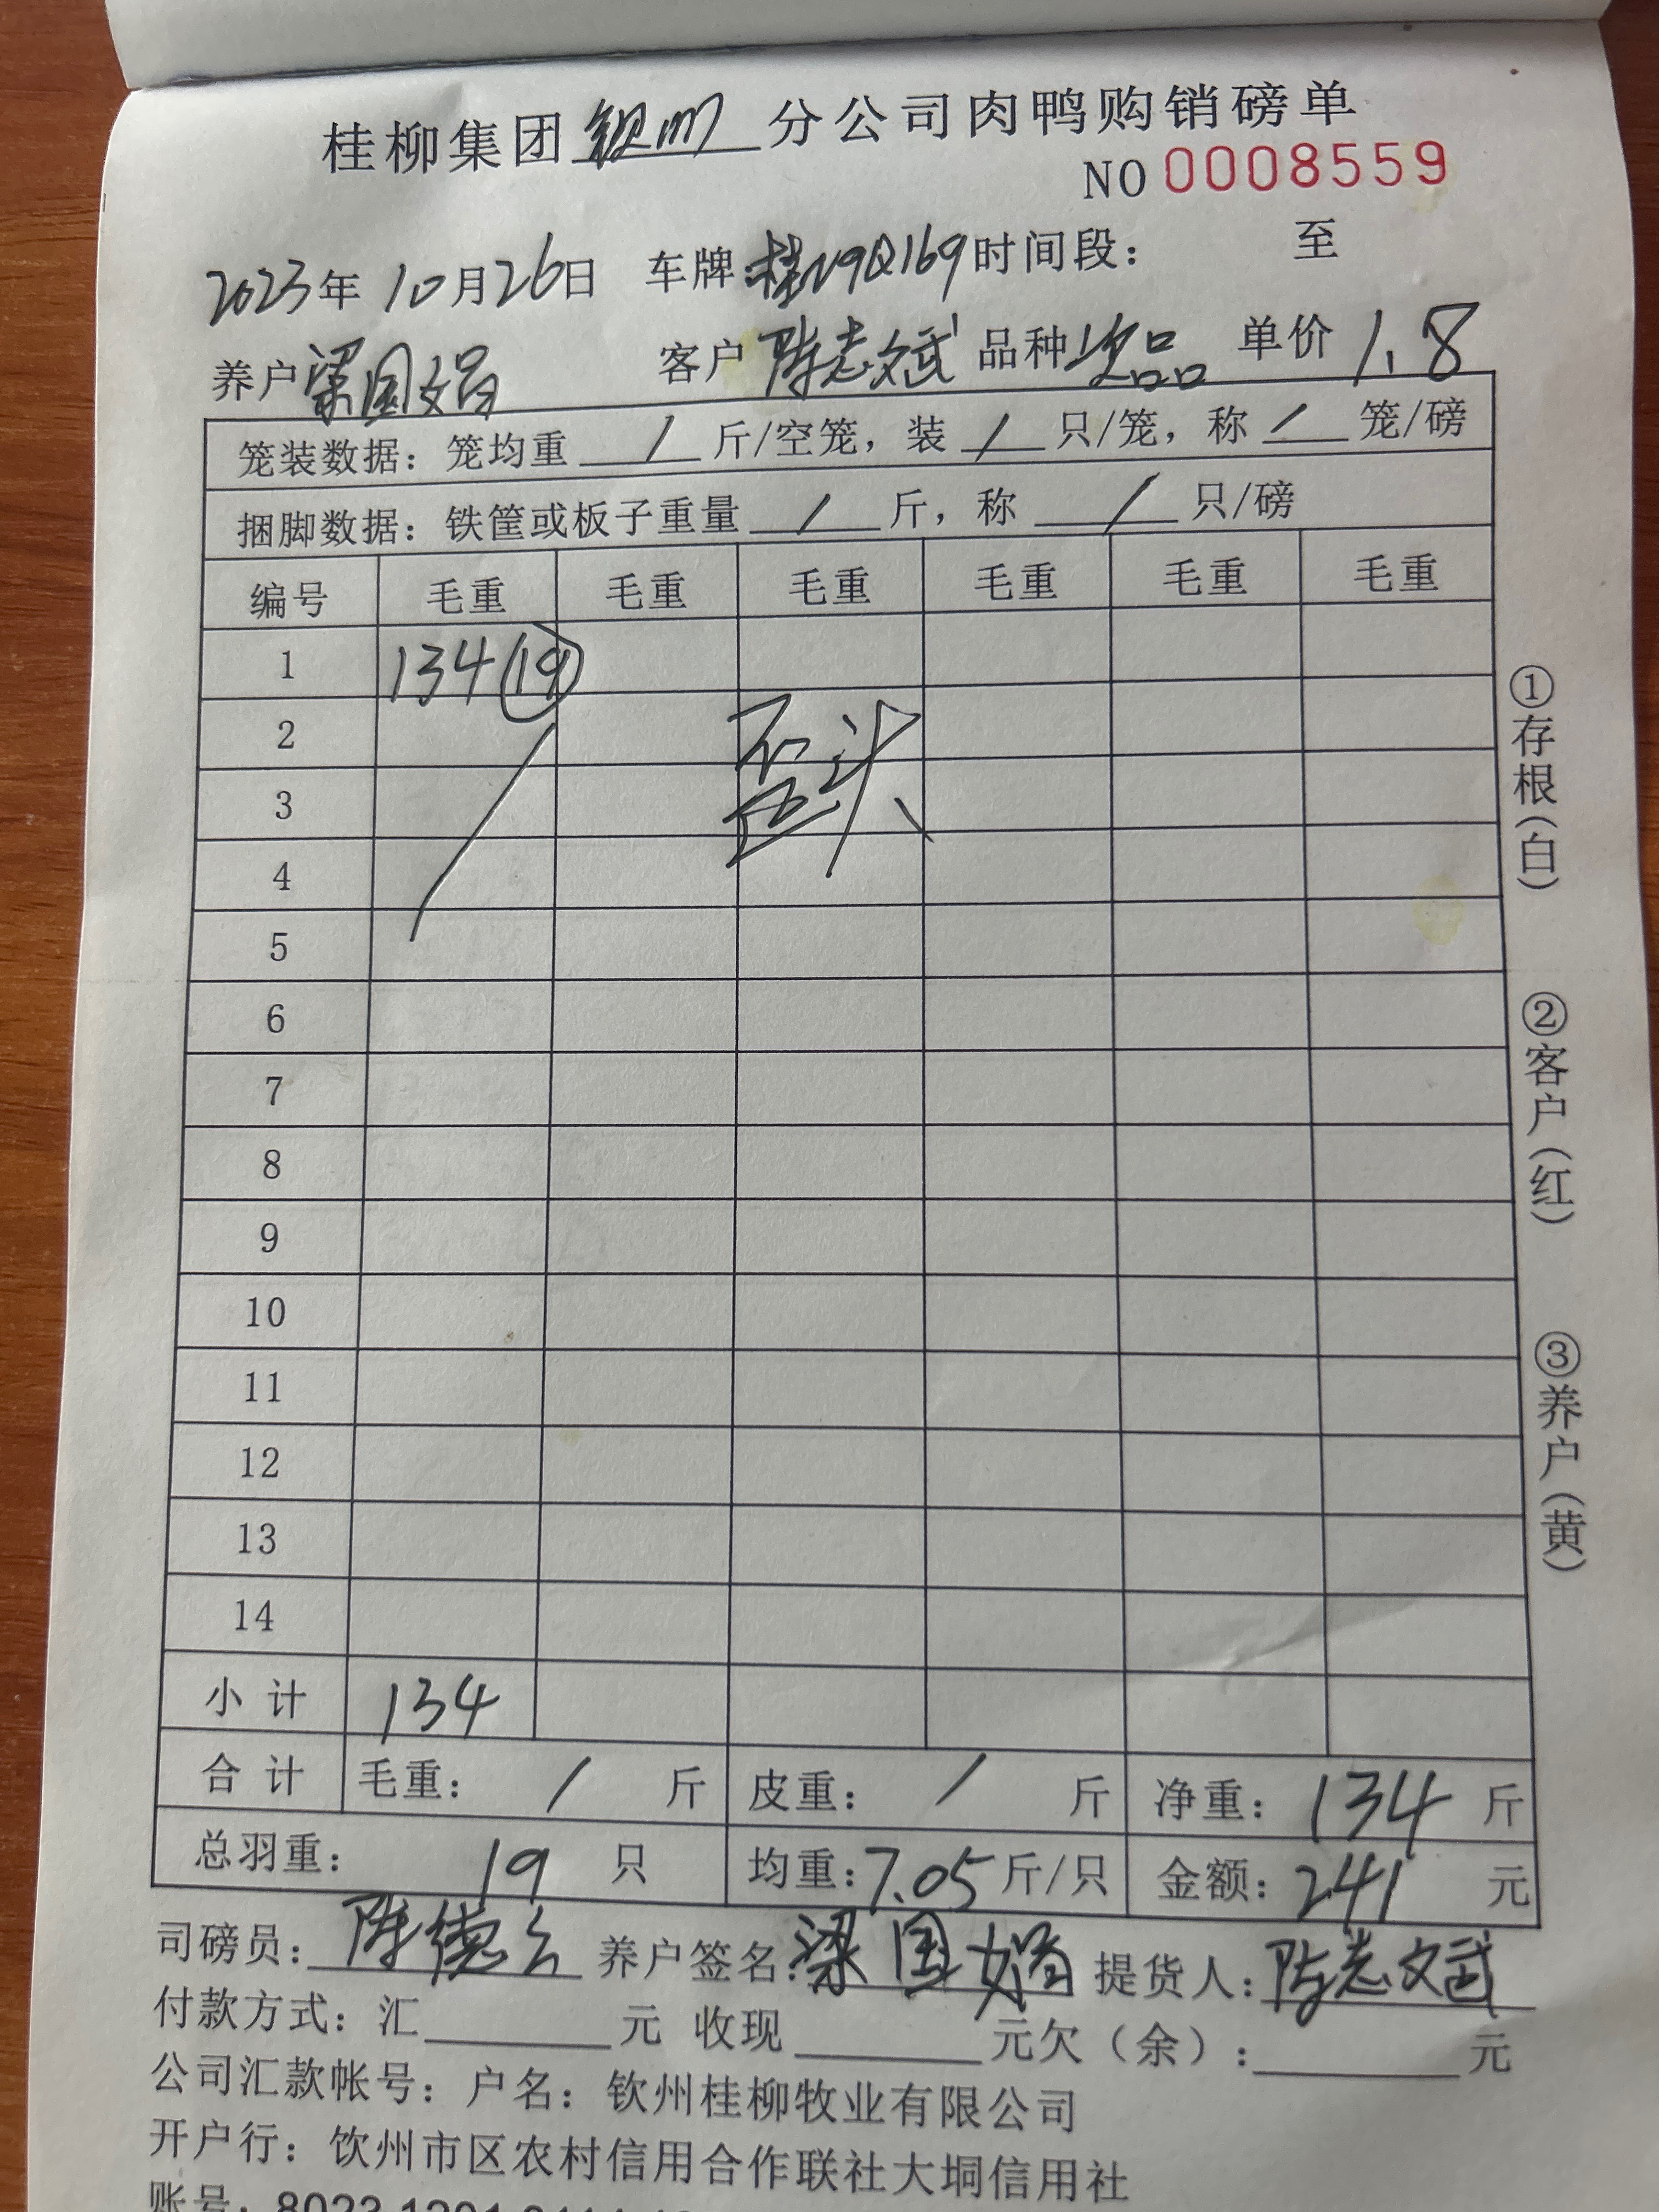 桂柳集团钦州分公司肉鸭购销磅单
NO 0008559
2023年10月26日 车牌:桂N9Q169时间段: 至
养户梁国娟 客户陈志斌 品种次品 单价1.8
笼装数据:笼均重 / 斤/空笼,装 / 只/笼,称 / 笼/磅
捆脚数据:铁筐或板子重量 / 斤,称 / 只/磅
编号 毛重 毛重 毛重 毛重 毛重 毛重
1 134(19)
2
3 歪头
4
5
6
7
8
9
10
11
12
13
14
小计 134
合计 毛重: / 斤 皮重: / 斤 净重:134斤
总羽重:19只 均重:7.05斤/只 金额:241元
司磅员:陈德 养户签名:梁国娟 提货人:陈志斌
付款方式:汇______元 收现______元欠(余):______元
公司汇款帐号:户名:钦州桂柳牧业有限公司
开户行:钦州市区农村信用合作联社大垌信用社
账号:8023 1201
①存根(白)
②客户(红)
③养户(黄)